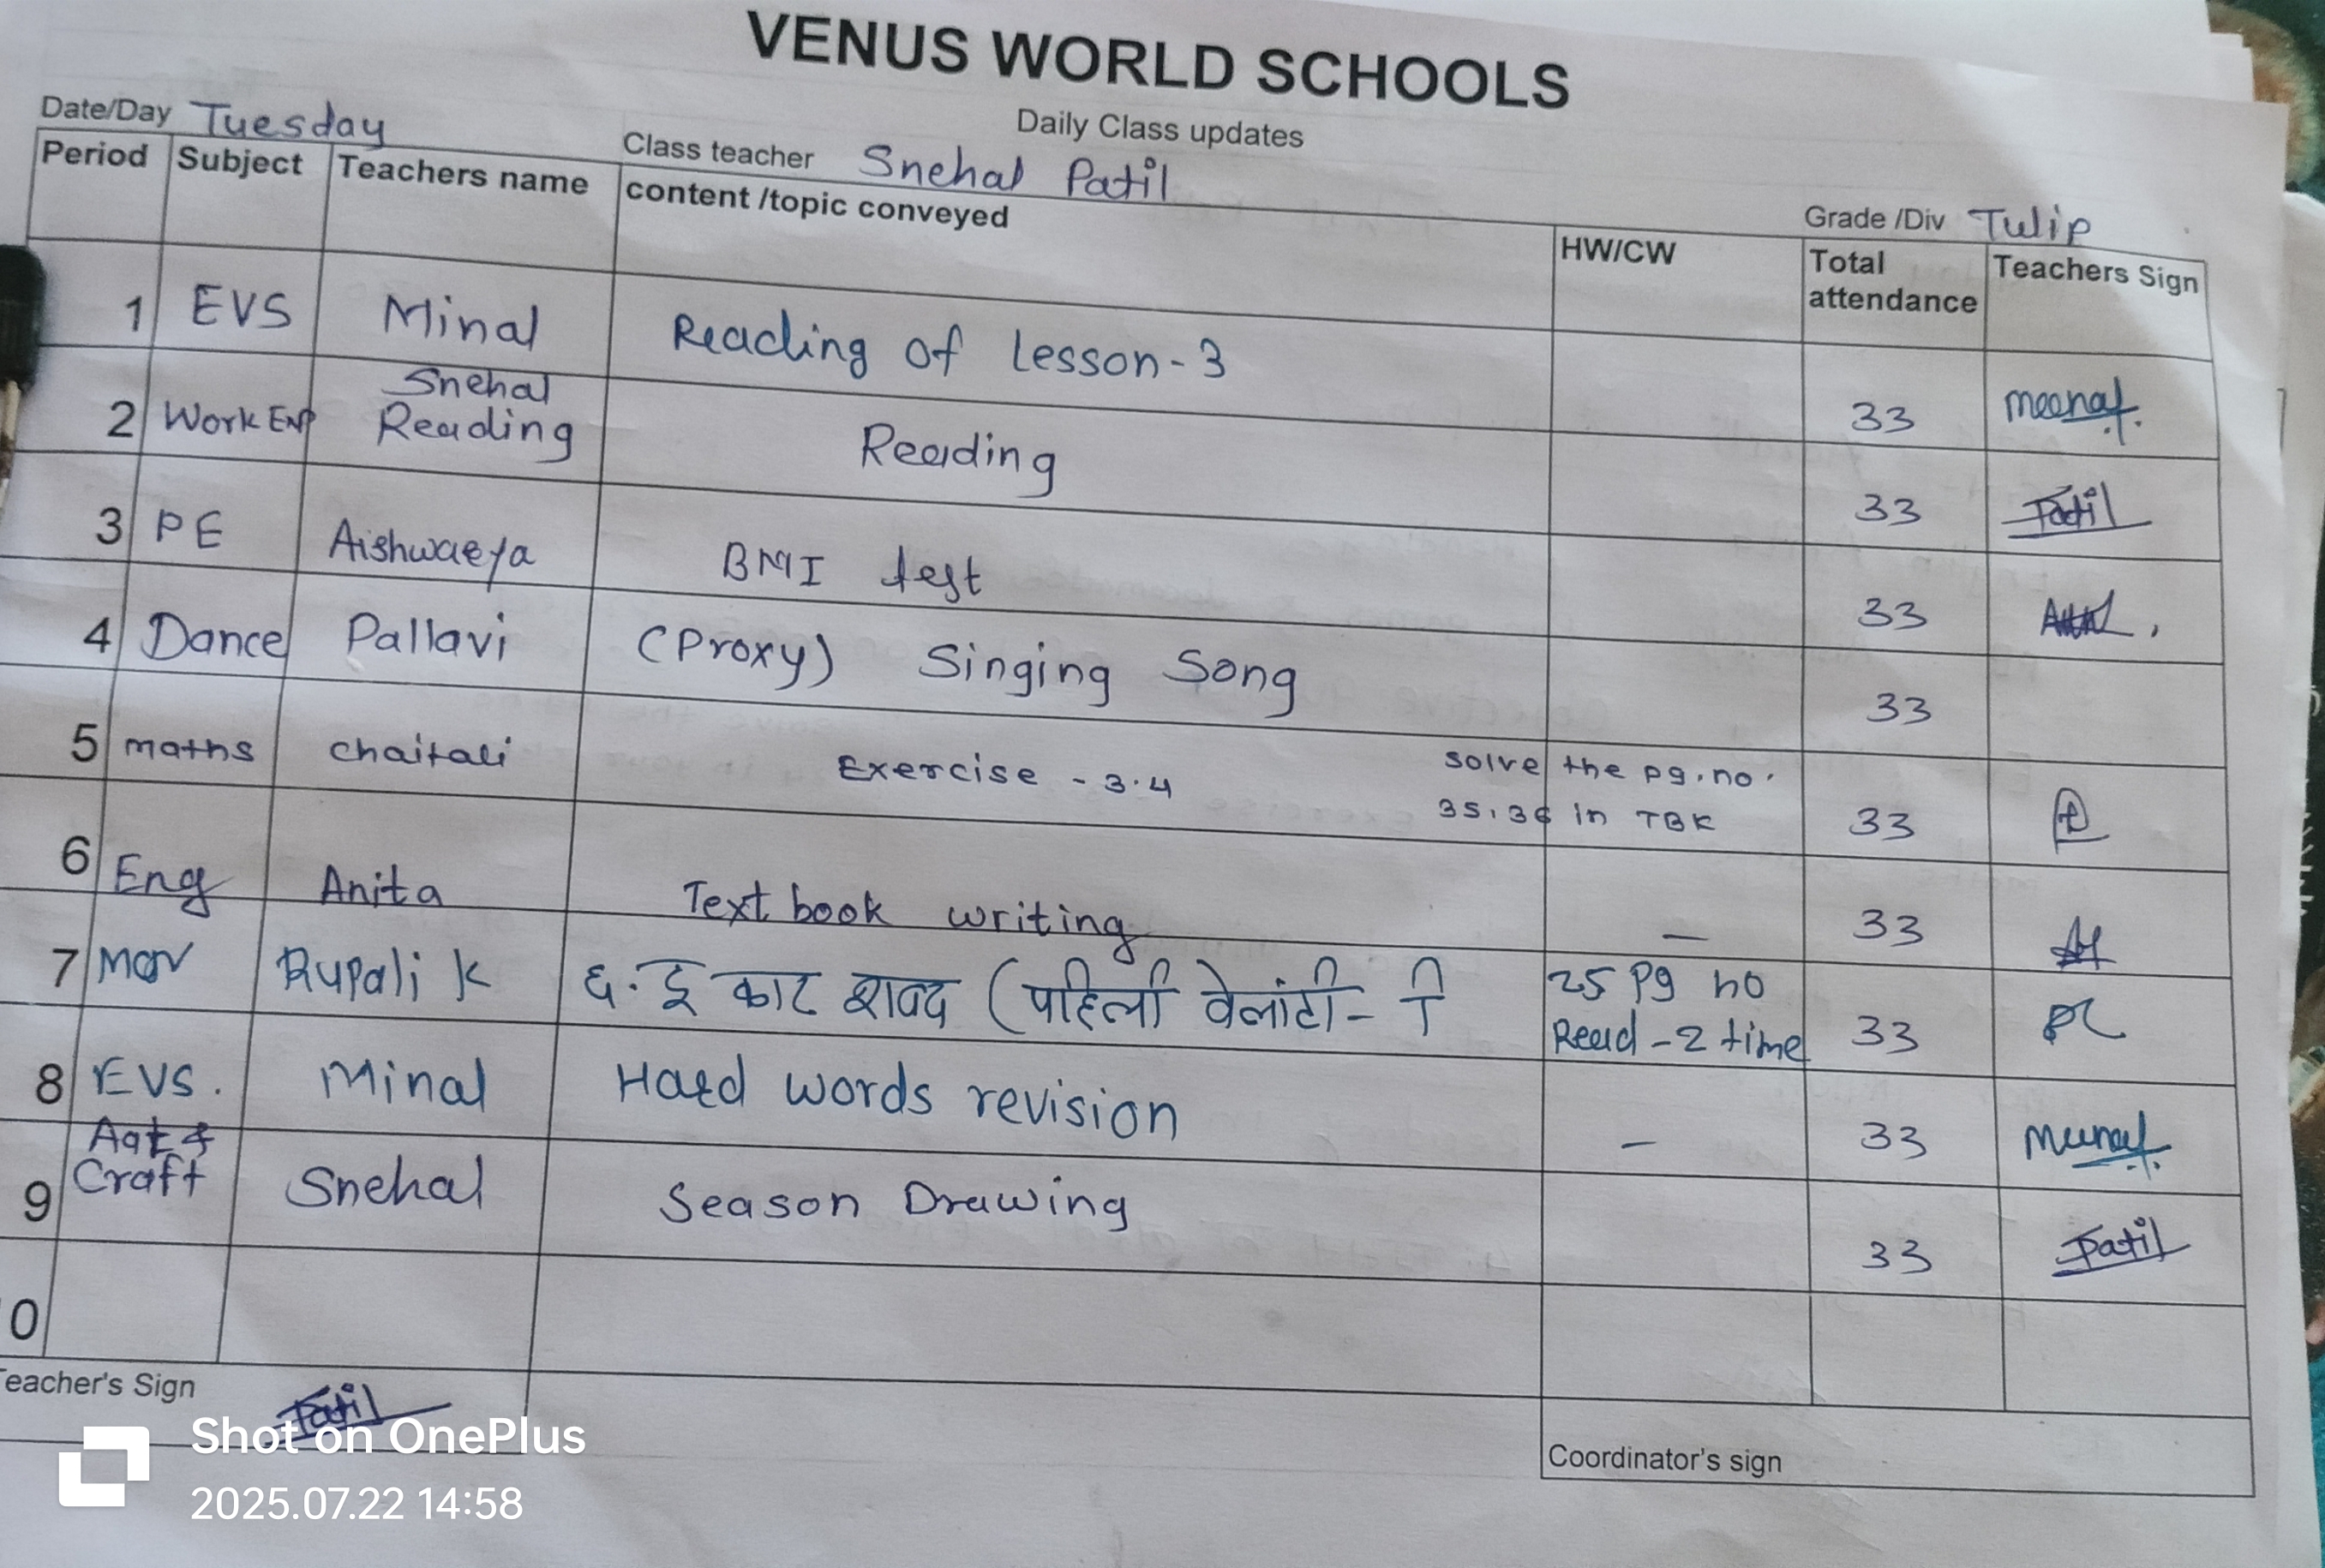 VENUS WORLD SCHOOLS
Daily Class updates
Date/Day Tuesday
Class teacher Snehal Patil
Grade /Div Tulip
Period Subject Teachers name content /topic conveyed HW/CW Total attendance Teachers Sign
1 EVS Minal Reading of Lesson-3 33 Meenal
2 Work Exp Snehal Reading Reading 33 Patil
3 PE Aishwarya BMI test 33
4 Dance Pallavi (Proxy) Singing Song 33
5 maths chaitali Exercise - 3.4 solve the pg.no. 35,36 in TBK 33
6 Eng Anita Text book writing — 33
7 Mar Rupali K ६. इ कार शब्द (पहिली वेलांटी - ि 25 Pg no Read - 2 time 33
8 EVS. Minal Hard words revision - 33 Meenal
9 Art & Craft Snehal Season Drawing 33 Patil
0
Teacher's Sign Patil
Coordinator's sign
Shot on OnePlus
2025.07.22 14:58